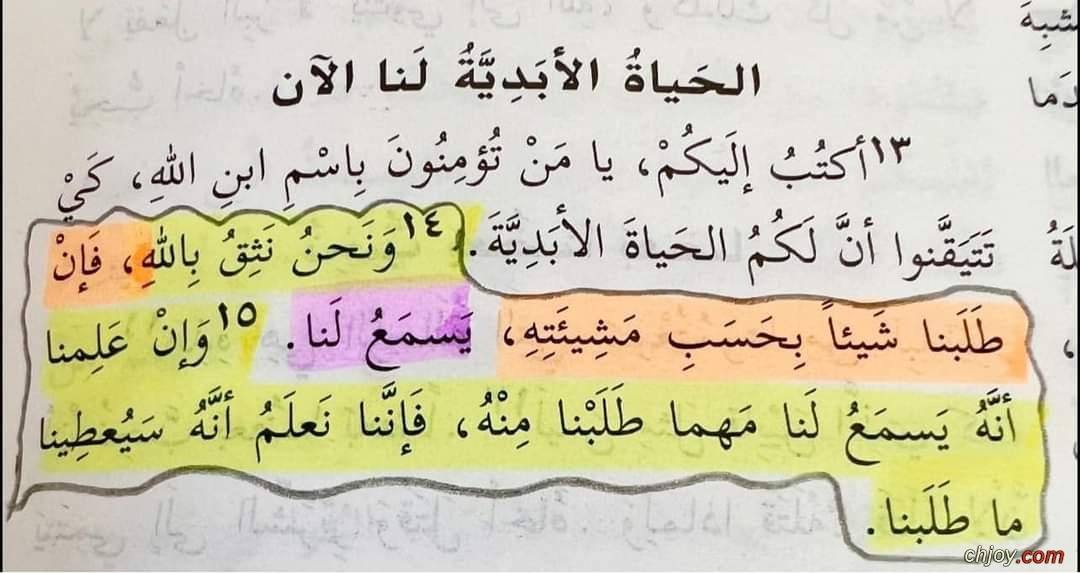 الحَياةُ الأبَدِيَّةُ لَنا الآن
١٣أكتُبُ إلَيكُمْ، يا مَنْ تُؤمِنُونَ بِاسْمِ ابنِ اللهِ، كَيْ
تَتَيَقَّنوا أنَّ لَكُمُ الحَياةَ الأبَدِيَّةَ. ١٤وَنَحنُ نَثِقُ بِاللهِ، فَإنْ
طَلَبنا شَيئاً بِحَسَبِ مَشِيئَتِهِ، يَسمَعُ لَنا. ١٥وَإنْ عَلِمنا
أنَّهُ يَسمَعُ لَنا مَهما طَلَبْنا مِنْهُ، فَإنَّنا نَعلَمُ أنَّهُ سَيُعطِينا
ما طَلَبنا.
chjoy.com